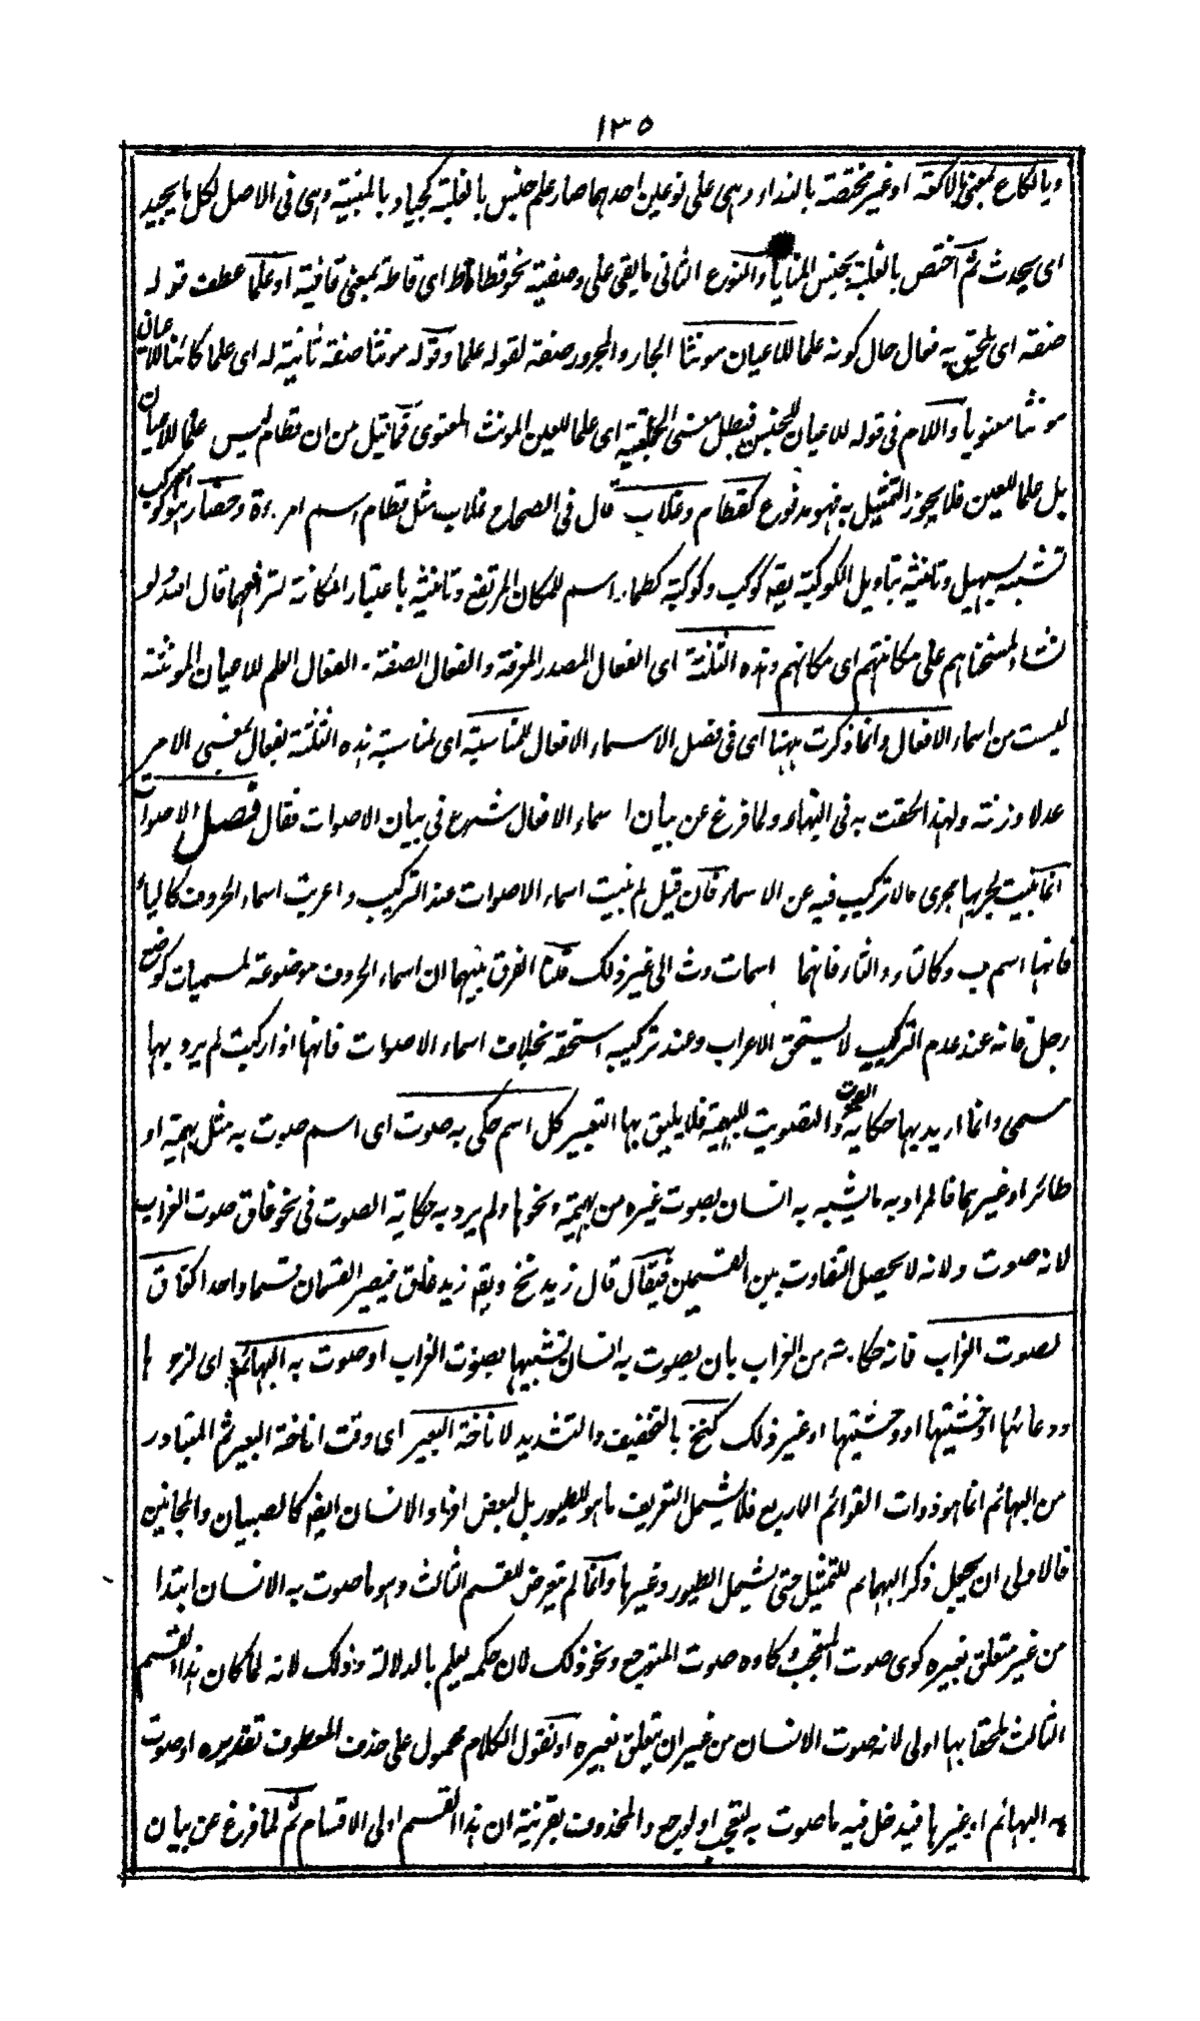 ١٣٥
ويالكاع بمعنى يا لاكعة او غير مختصة بالنداء وهى على نوعين احدهما صار علم جنس بالغلبة كحياد بالمنية وهى فى الاصل لكل ما يحيد
اى يحدث ثم اختص بالغلبة بجنس المنايا والنوع الثانى ما بقى على وصفية نحو قطاط اى قاطة بمعنى قافية او علما عطف قوله
صفة اى يلحق به فعال حال كونه علما للاعيان مونثا الجار والمجرور صفة لقوله علما وقوله مونثا صفة ثانية له اى علما كائنا للاعيان
مونثا معنويا واللام فى قوله للاعيان للجنس فبطل معنى الجمعية اى علما للعين المونث المعنوى فما قيل من ان قطام ليس علما للاعيان
بل علما للعين فلا يجوز التمثيل به فهو مدفوع كقطام وغلاب قال فى الصحاح غلاب مثل قطام اسم امرءة وحضار هو كوكب
تشبيه بسهيل وتانيثه بتاويل الكوكبة يقه كوكب وكوكبة كطمار اسم للمكان المرتفع وتانيثه باعتبار المكانة لترافعهما قال الله ولو
نشاء لمسخناهم على مكانتهم اى مكانهم وهذه الثلثة اى الفعال المصدر المعرفة والفعال الصفة - الفعال العلم للاعيان المونثة
ليست من اسماء الافعال وانما ذكرت ههنا اى فى فصل الاسماء الافعال للمناسبة اى لمناسبة هذه الثلثة بفعال بمعنى الامر
عدلا وزنة ولهذا الحقت به فى البناء ولما فرغ عن بيان اسماء الافعال شرع فى بيان الاصوات فقال فصل الاصوات
انما بنيت لجريها مجرى مالا تركيب فيه عن الاسماء فان قيل لم بنيت اسماء الاصوات عند التركيب واعربت اسماء الحروف كالباء
فانها اسم ب وكالتاء والثاء فانهما اسمات وث الى غير ذلك قلنا الفرق بينهما ان اسماء الحروف موضوعة لمسميات كوضع
رجل فانه عند عدم التركيب لا يستحق الاعراب وعند تركيبه استحقه بخلاف اسماء الاصوات فانها اذا ركبت لم يرد بها
مسمى وانما اريد بها حكاية الصوت والتصويت للبهيمة فلا يليق بها التعبير كل اسم حكى به صوت اى اسم صوت به مثل بهيمة او
طائر او غيرهما فالمراد به ما يشبه به انسان بصوت غيره من بهيمة ونحوها ولم يرد به حكاية الصوت فى نحو غاق صوت الغراب
لانه صوت ولانه لا يحصل التفاوت بين القسمين فيقال قال زيد نخ ويقه زيد غاق فيصير القسمان قسما واحدا كغاق
لصوت الغراب فانه حكاية من الغراب بان يصوت به انسان تشبيها بصوت الغراب او صوت به البهائم اى لزجرها
ودعائها او غير ذلك كنخ بالتخفيف والتشديد لاناخة البعير اى وقت اناخة البعير ثم المتبادر
من البهائم انما هو ذوات القوائم الاربع فلا يشمل التعريف ما هو للطيور بل لبعض افراد الانسان ايضه كالصبيان والمجانين
فالاولى ان يجعل ذكر البهائم للتمثيل حتى يشمل الطيور وغيرها وانما لم يتعرض للقسم الثالث وهو ما صوت به الانسان ابتداء
من غير متعلق بغيره كوى صوت المتعجب وكاوه صوت المتوجع ونحو ذلك لان حكمه يعلم بالدلالة وذلك لانه لما كان هذا القسم
الثالث ملحقا بها اولى لانه صوت الانسان من غير ان يتعلق بغيره او نقول الكلام محمول على حذف المعطوف تقديره او صوت
به البهائم او غيرها فيدخل فيه ما صوت به لتعجب او لوجع والمحذوف بقرينة ان هذا القسم اولى الاقسام ثم لما فرغ عن بيان